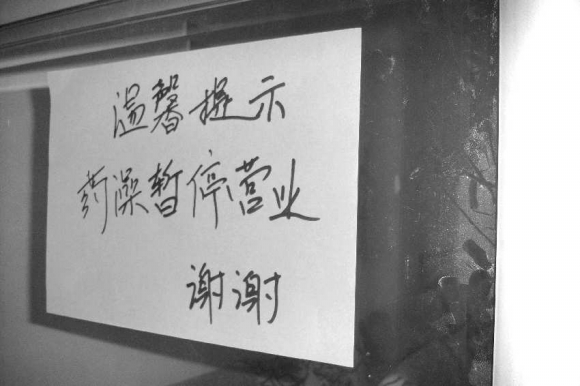 温馨提示
药澡暂停营业
谢谢